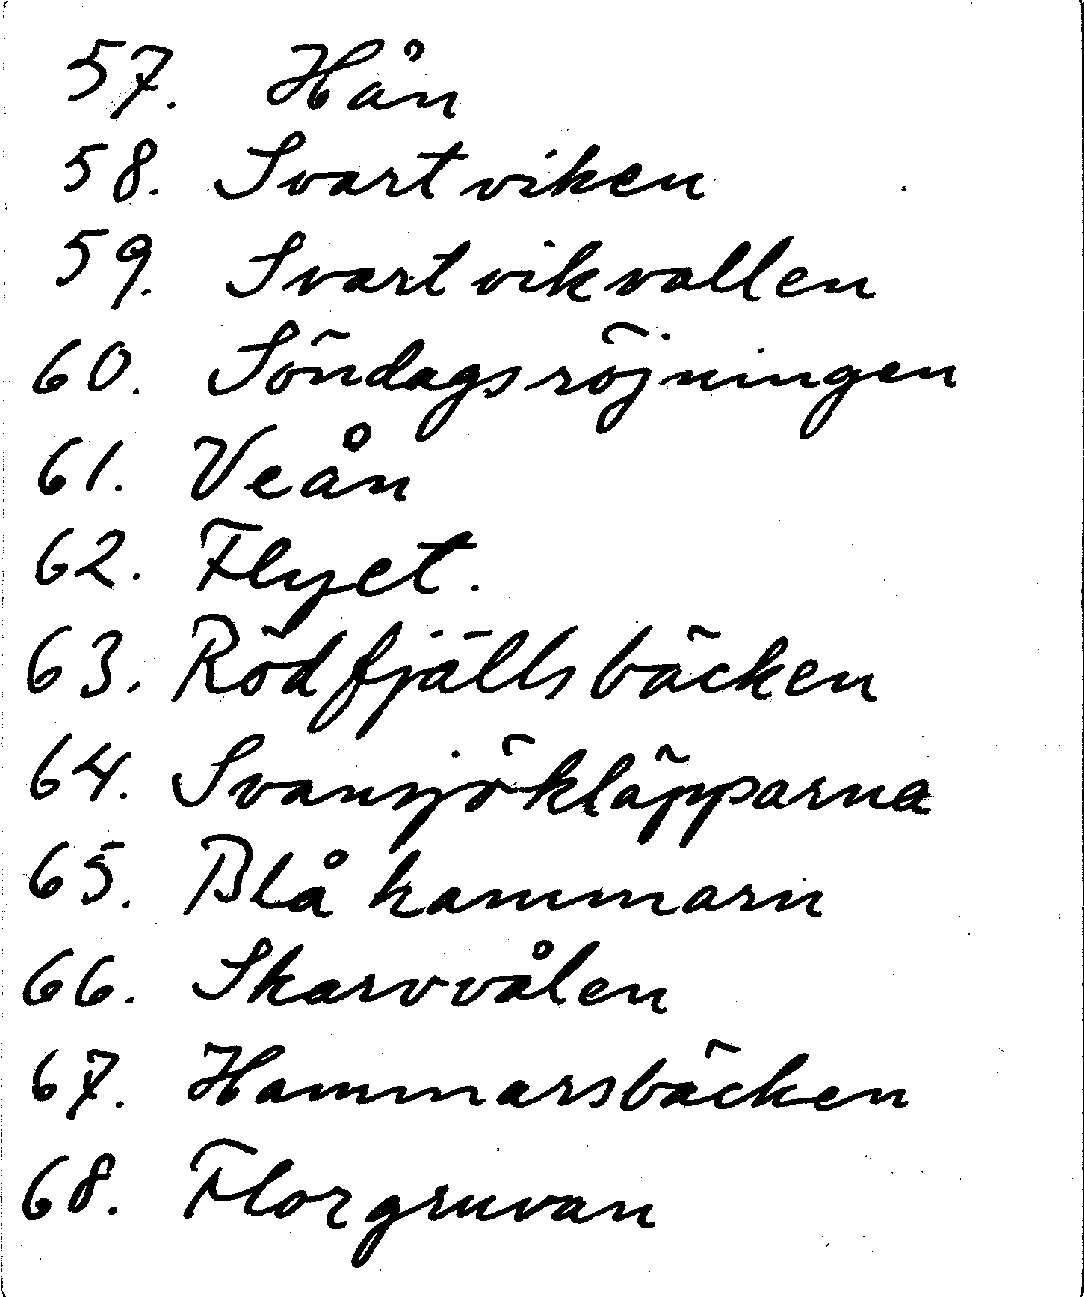 57. Hån
58. Svartviken
59. Svartvikvallen
60. Söndagsröjningen
61. Veån
62. Flyet.
63. Rödfjällsbäcken
64. Svansjökläpparna
65. Blåkammarn
66. Skarvvålen
67. Hammarsbäcken
68. Florgruvan